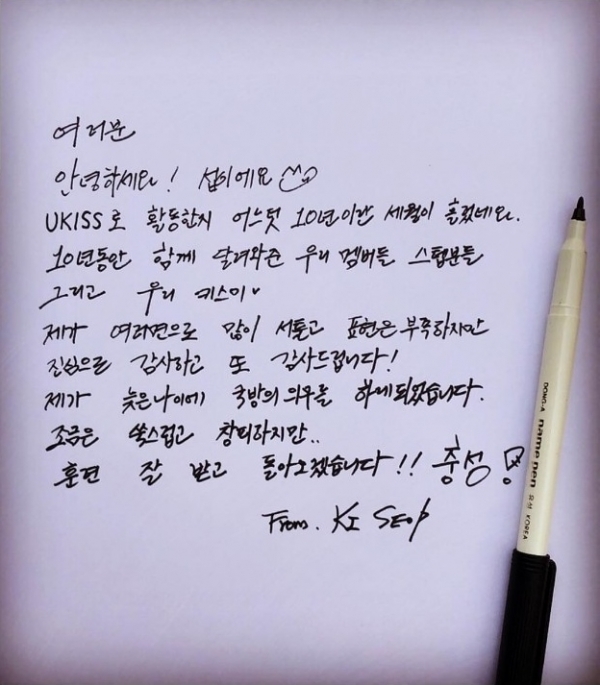 여러분
안녕하세요! 섭이에요
UKISS로 활동한지 어느덧 10년이란 세월이 흘렀네요.
10년동안 함께 달려와준 우리 멤버들 스텝분들
그리고 우리 키스미♥
제가 여러면으로 많이 서툴고 표현은 부족하지만
진심으로 감사하고 또 감사드립니다!
제가 늦은나이에 국방의 의무를 하게되었습니다.
조금은 쑥스럽고 창피하지만..
훈련 잘 받고 돌아오겠습니다!! 충성
From. KI SEOP
DONG-A name pen 유성 KOREA